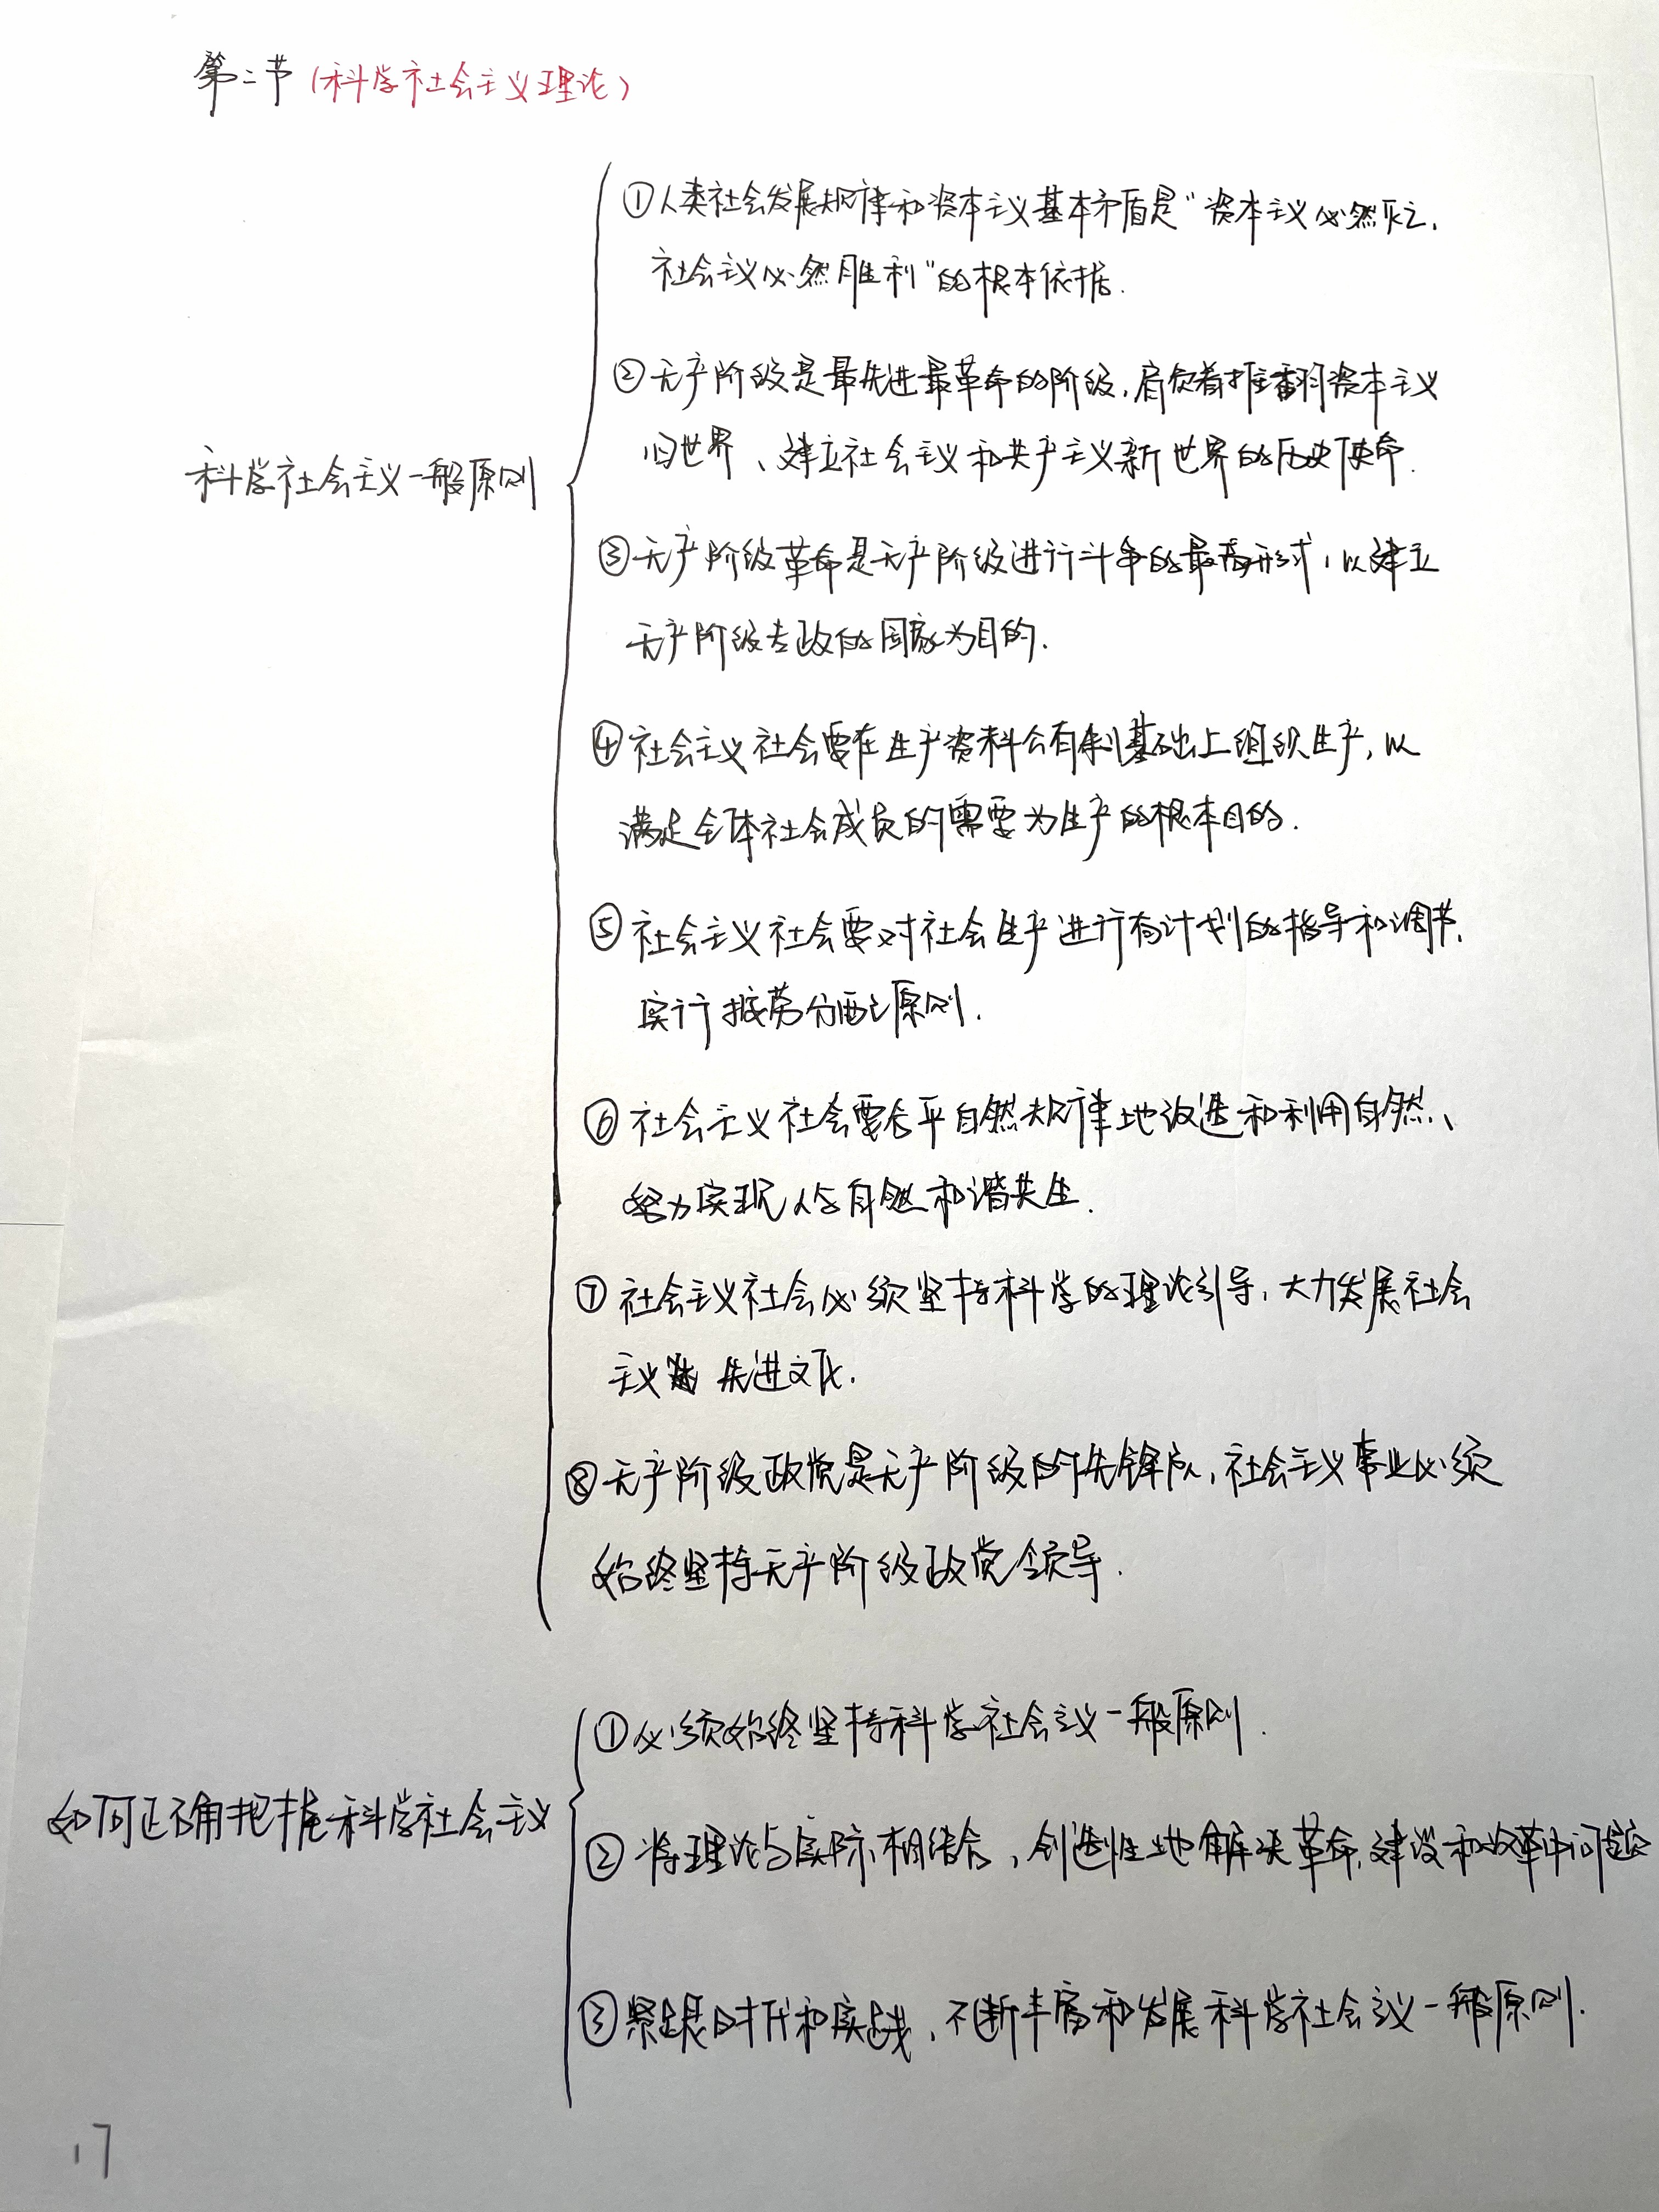 第二节（科学社会主义理论）
①人类社会发展规律和资本主义基本矛盾是“资本主义必然灭亡，
社会主义必然胜利”的根本依据.
②无产阶级是最先进最革命的阶级，肩负着推翻资本主义
旧世界、建立社会主义和共产主义新世界的历史使命.
科学社会主义一般原则
③无产阶级革命是无产阶级进行斗争的最高形式，以建立
无产阶级专政的国家为目的.
④社会主义社会要在生产资料公有制基础上组织生产，以
满足全体社会成员的需要为生产的根本目的.
⑤社会主义社会要对社会生产进行有计划的指导和调节，
实行按劳分配原则.
⑥社会主义社会要合乎自然规律地改造和利用自然、
努力实现人与自然和谐共生.
⑦社会主义社会必须坚持科学的理论引导，大力发展社会
主义先进文化.
⑧无产阶级政党是无产阶级的先锋队，社会主义事业必须
始终坚持无产阶级政党领导.
①必须始终坚持科学社会主义一般原则.
如何正确把握科学社会主义
②将理论与实际相结合，创造性地解决革命，建设和改革中问题
③紧跟时代和实践，不断丰富和发展科学社会主义一般原则.
17